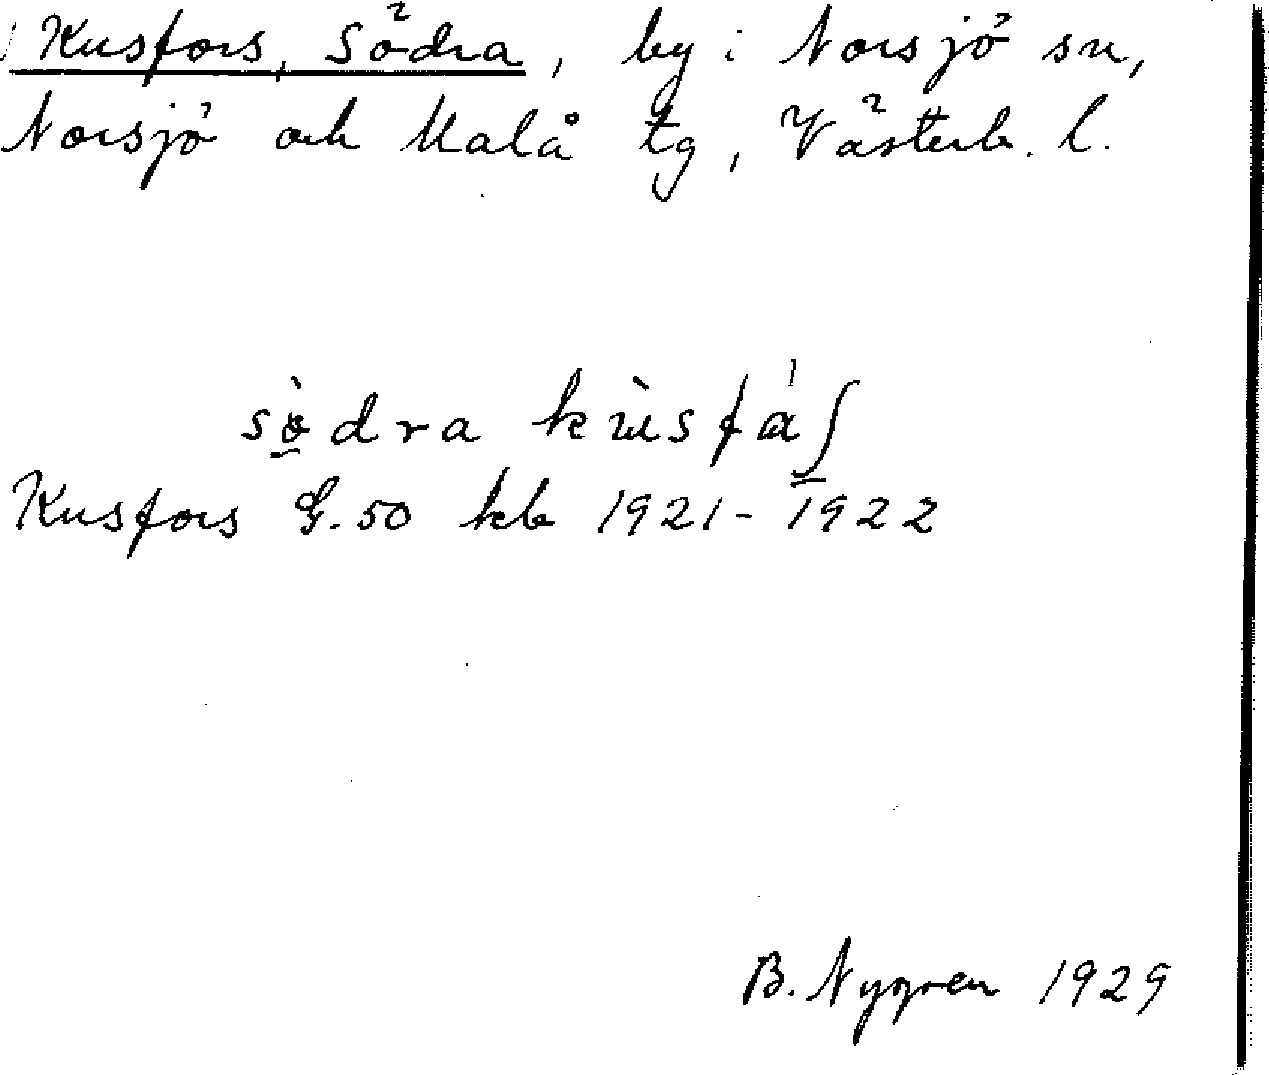 Kusfors, Södra, by i Norsjö sn,
Norsjö och Malå tg, Västerb. l.
södra
Kusfors G.50 kb 1921-1922
B. Nygren 1929